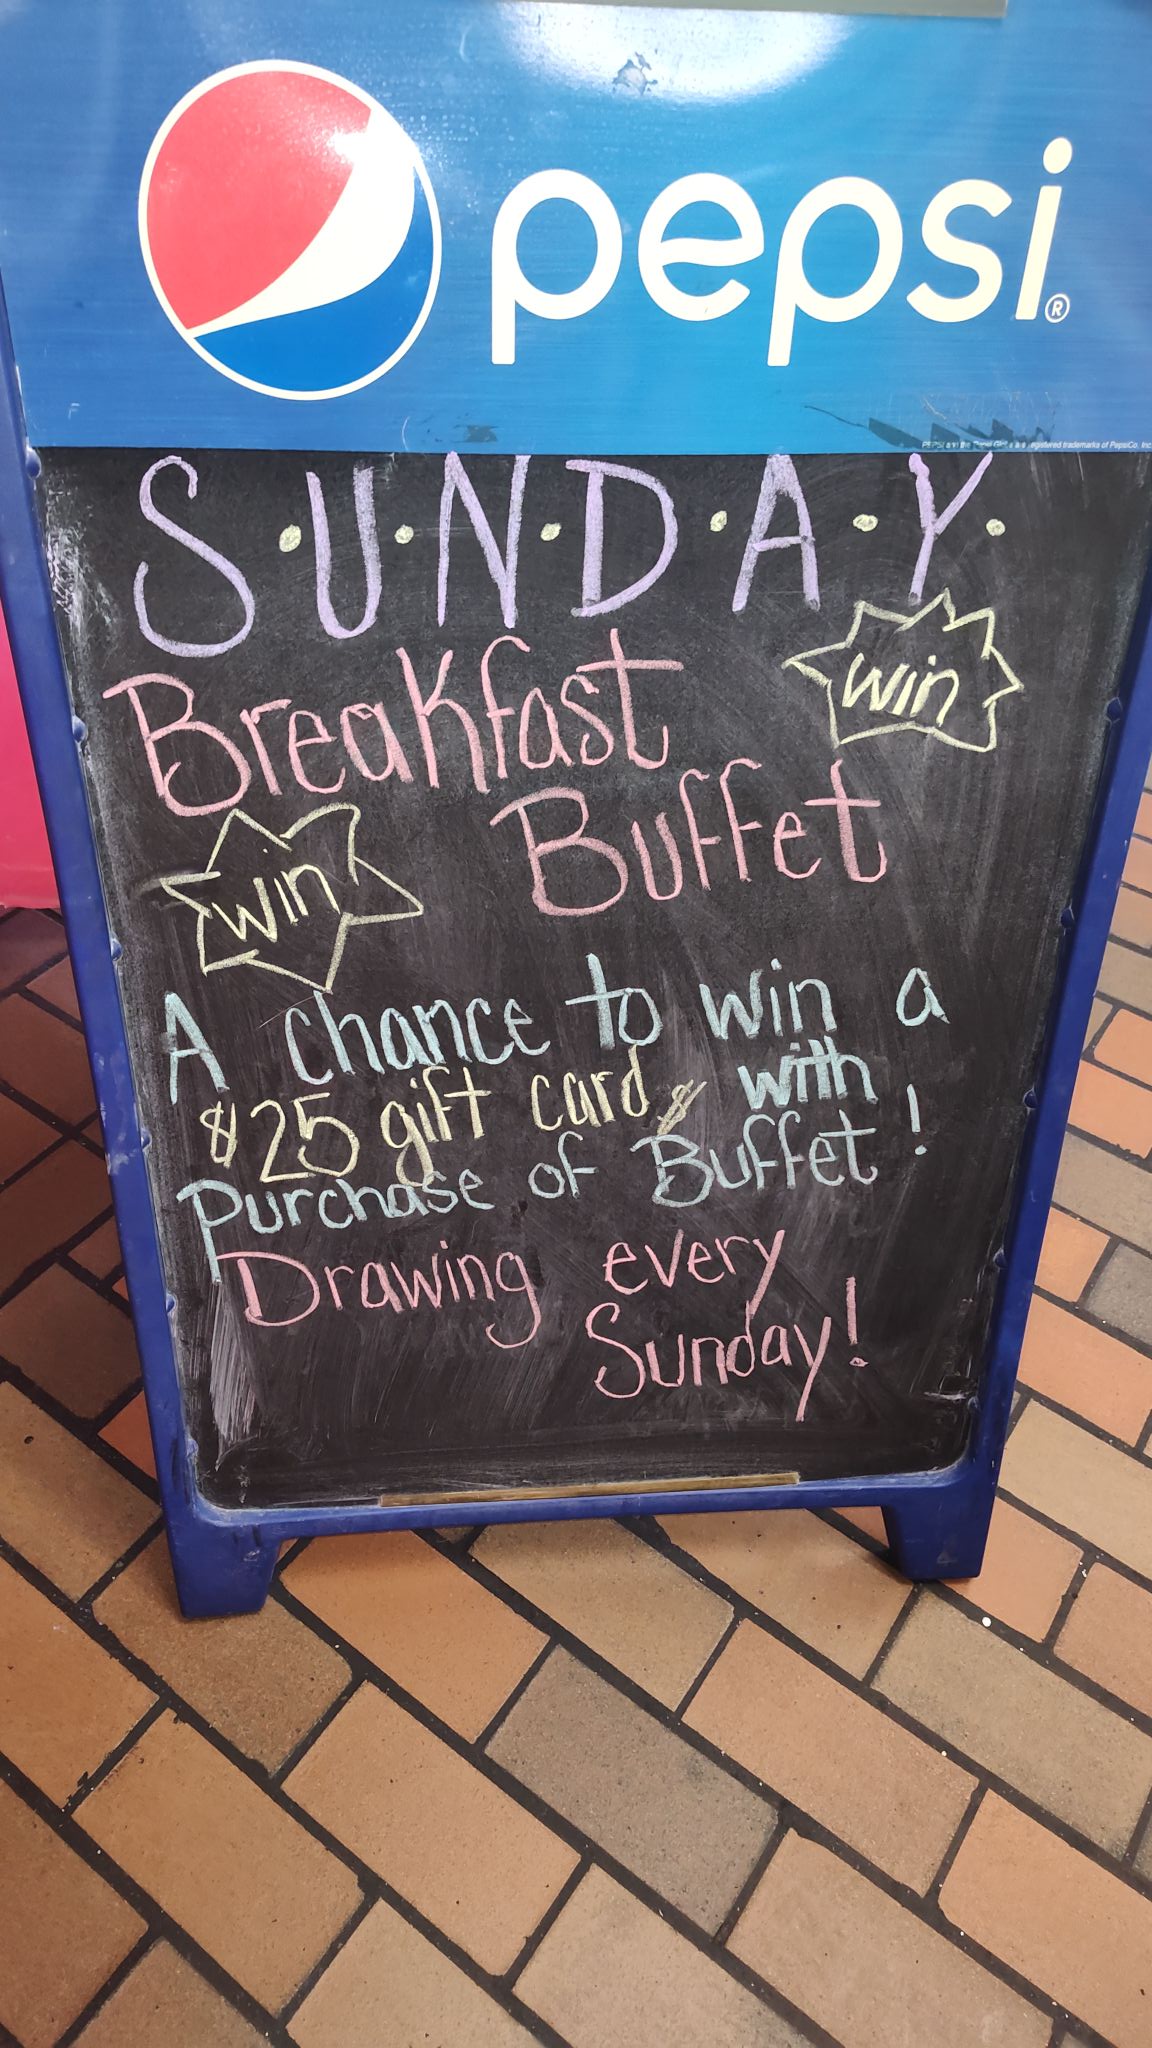 pepsi®
PEPSI and the Pepsi Globe are registered trademarks of PepsiCo, Inc.
S·U·N·D·A·Y·
Breakfast
win
Buffet
win
A chance to win a
$25 gift card $ with
Purchase of Buffet!
Drawing every
Sunday!